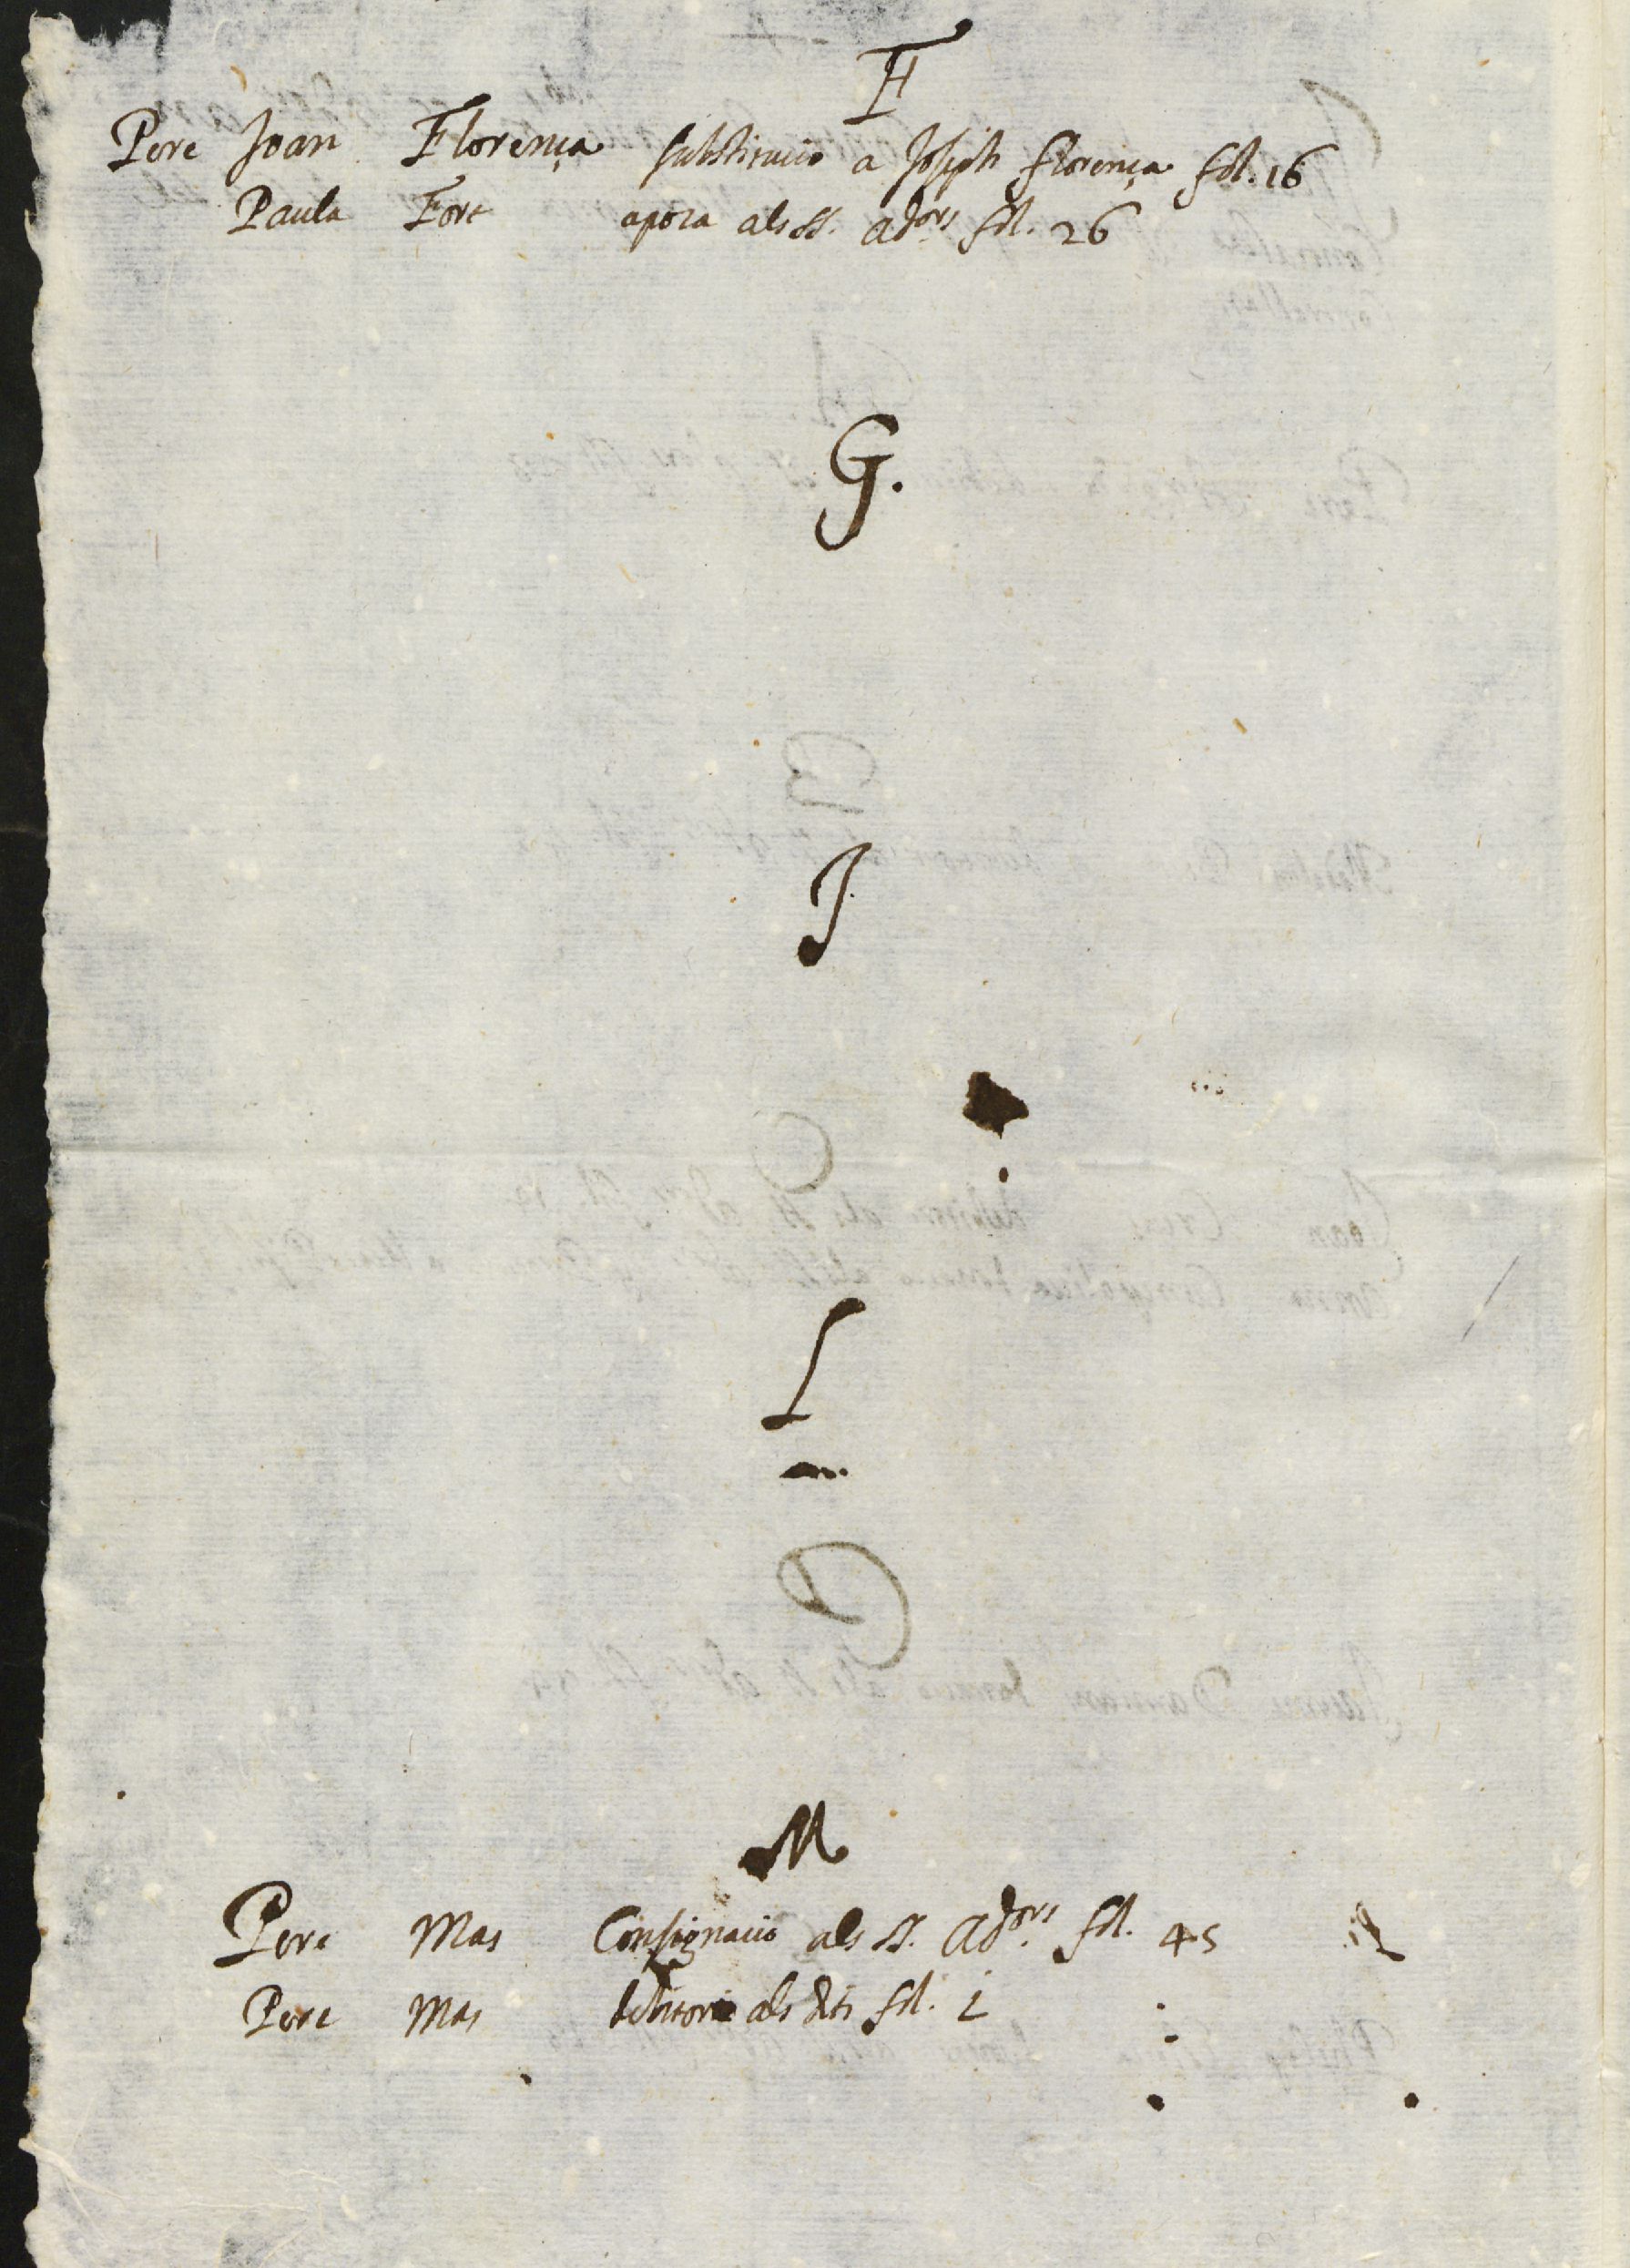 F
Pere Joan Florença substitucio a Joseph florença fol. 16
Paula Fort apoca als SS. adors fol. 26
G.
J
L
M
Pere Mas Consignacio als SS. adors fol. 45
Pere Mas debitori als dits fol. 1